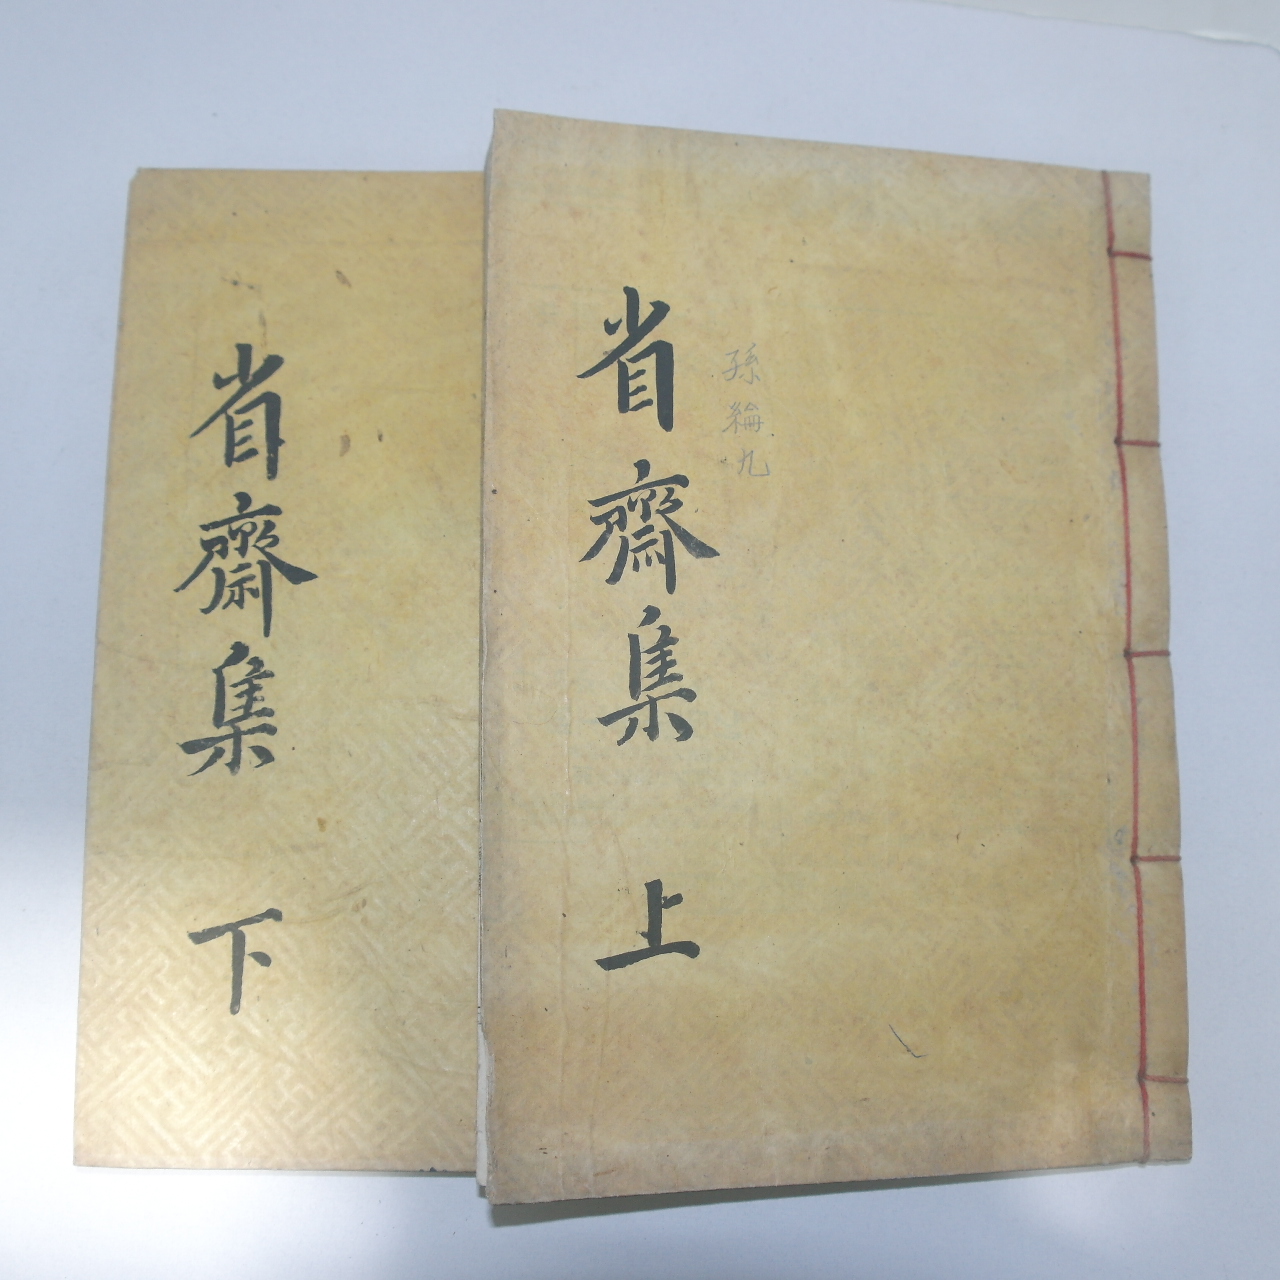 省齋集 上
孫綸九
省齋集 下